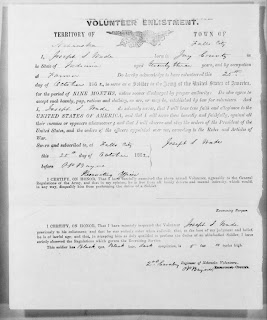 VOLUNTEER ENLISTMENT.
TERRITORY OF TOWN OF
Nebraska Falls City
I, Joseph S. Wade born in Jay County
in State of Indiana aged twenty three years, and by occupation
a Farmer Do hereby acknowledge to have volunteered this 25th
day of October 1862, to serve as a Soldier in the Army of the United States of America,
for the period of NINE MONTHS, unless sooner discharged by proper authority: Do also agree to
accept such bounty, pay, rations and clothing, as are, or may be, established by law for volunteers. And
I, Joseph S. Wade do solemnly swear, that I will bear true faith and allegiance to the
UNITED STATES OF AMERICA, and that I will serve them honestly and faithfully against all
their enemies or opposers whomsoever; and that I will observe and obey the orders of the President of the
United States, and the orders of the officers appointed over me, according to the Rules and Articles of
War.
Sworn and subscribed to, at Falls City
this 25th day of October 1862 Joseph S. Wade
before
Recruiting Officer
I CERTIFY, ON HONOR, That I have carefully examined the above named Volunteer, agreeably to the General
Regulations of the Army, and that in my opinion he is free from all bodily defects and mental infirmity, which would
in any way, disqualify him from performing the duties of a soldier.
Examining Surgeon.
I CERTIFY, ON HONOR, That I have minutely inspected the Volunteer Joseph S. Wade
previously to his enlistment, and that he was entirely sober when enlisted; that, to the best of my judgment and belief,
he is of lawful age; and that, in accepting him as duly qualified to perform the duties of an able-bodied Soldier, I have
strictly observed the Regulations which govern the Recruiting Service.
This soldier has Black eyes, Black hair, Dark complexion, is 5 feet inches high
2nd Cavalry Regiment of Nebraska Volunteers,
RECRUITING OFFICER.